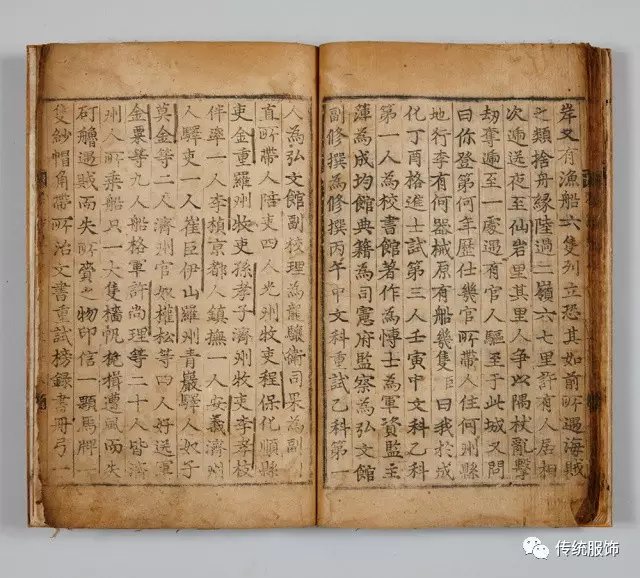 岸又有漁船六隻列立恐其如前所遇海賊
之類捨舟緣陸過二嶺六七里許有人居相
次遞送夜至仙岩里其里人爭以隅杖亂擊
劫奪遞至一處遇有官人驅至于此城又問
曰你登第何年歷仕幾官所帶人住何州縣
地行李有何器械原有船幾隻臣曰我於成
化丁酉格進士試第三人壬寅中文科乙科
第一人為校書館著作為博士為軍資監主
簿為成均館典籍為司憲府監察為弘文館
副修撰為修撰丙午中文科重試乙科第一
人為弘文館副校理為龍驤衛司果為副
直所帶人陪吏四人光州牧吏程保化順縣
吏金重羅州牧吏孫孝子濟州牧吏李孝枝
伴率一人李楨京都人鎮撫一人安義濟州
人驛吏一人崔巨伊山羅州青巖驛人奴子
莫金等二人濟州官奴權松等四人好送軍
金粟等九人船格軍許尚理等二十人皆濟
州人所乘船只一大隻檣帆桅楫遭風而失
矴艣遇賊而失所賫之物印信一顆馬牌一
隻紗帽角帶所治文書重試榜錄書冊弓一
传统服饰